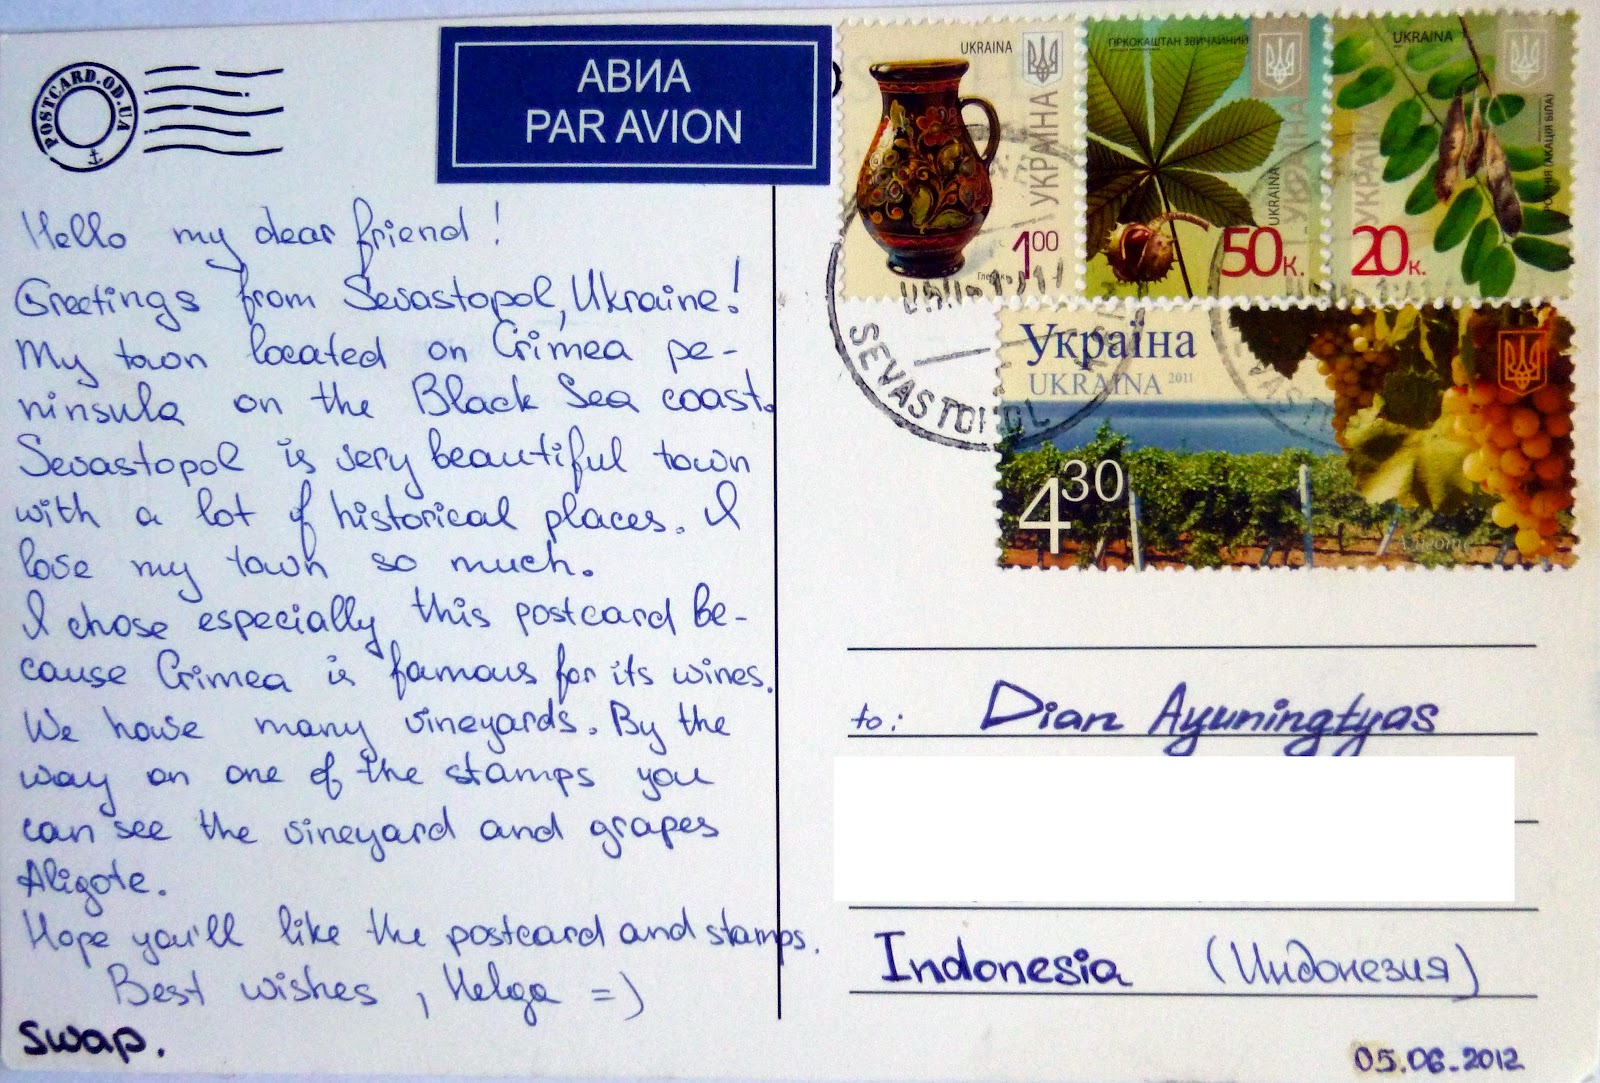 POSTCARD.OD.UA
АВИА
PAR AVION
UKRAINA
УКРАЇНА
1 00
ГІРКОКАШТАН ЗВИЧАЙНИЙ
UKRAINA
УКРАЇНА
50 к.
UKRAINA
УКРАЇНА
20 к.
(АКАЦІЯ БІЛА)
SEVASTOPOL
Україна
UKRAINA 2011
4 30
Аліготе
Hello my dear friend!
Greetings from Sevastopol, Ukraine!
My town located on Crimea pe-
ninsula on the Black Sea coast.
Sevastopol is very beautiful town
with a lot of historical places. I
love my town so much.
I chose especially this postcard be-
cause Crimea is famous for its wines.
We have many vineyards. By the
way on one of the stamps you
can see the vineyard and grapes
Aligote.
Hope you'll like the postcard and stamps.
Best wishes, Helga =)
swap.
to: Dian Ayuningtyas
Indonesia (Индонезия)
05.06.2012